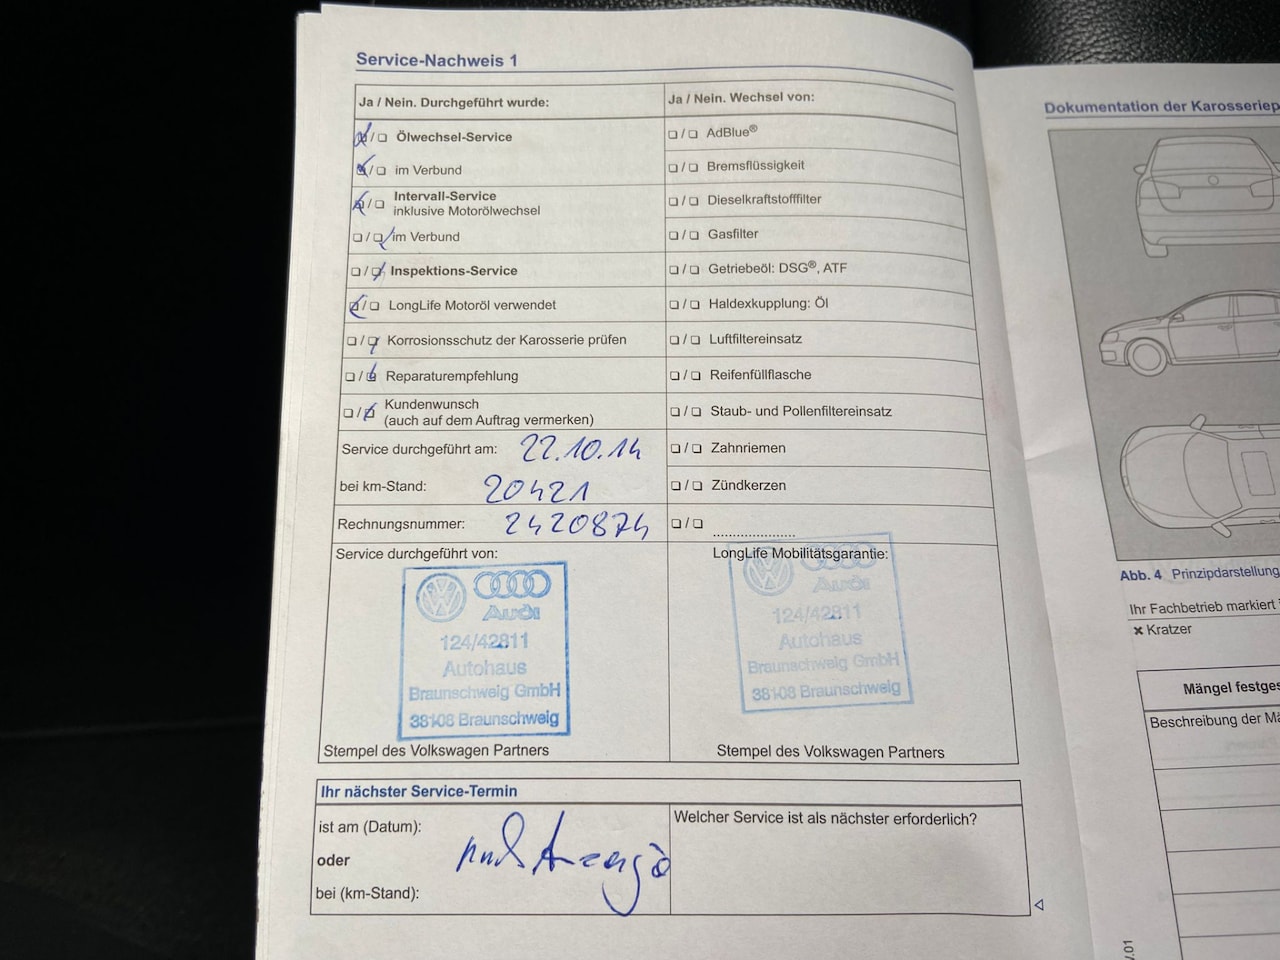 Service-Nachweis 1
Ja / Nein. Durchgeführt wurde:
Ölwechsel-Service
im Verbund
Intervall-Service
inklusive Motorölwechsel
im Verbund
Inspektions-Service
LongLife Motoröl verwendet
Korrosionsschutz der Karosserie prüfen
Reparaturempfehlung
Kundenwunsch
(auch auf dem Auftrag vermerken)
Service durchgeführt am: 22.10.14
bei km-Stand: 20421
Rechnungsnummer: 2420874
Service durchgeführt von:
Audi
124/42811
Autohaus
Braunschweig GmbH
38108 Braunschweig
Stempel des Volkswagen Partners
Ja / Nein. Wechsel von:
AdBlue®
Bremsflüssigkeit
Dieselkraftstofffilter
Gasfilter
Getriebeöl: DSG®, ATF
Haldexkupplung: Öl
Luftfiltereinsatz
Reifenfüllflasche
Staub- und Pollenfiltereinsatz
Zahnriemen
Zündkerzen
LongLife Mobilitätsgarantie:
Audi
124/42811
Autohaus
Braunschweig GmbH
38108 Braunschweig
Stempel des Volkswagen Partners
Ihr nächster Service-Termin
ist am (Datum):
oder
bei (km-Stand):
nach Anzeige
Welcher Service ist als nächster erforderlich?
Dokumentation der Karosseriep
Abb. 4 Prinzipdarstellung
Ihr Fachbetrieb markiert
× Kratzer
Mängel festges
Beschreibung der Mä
.01